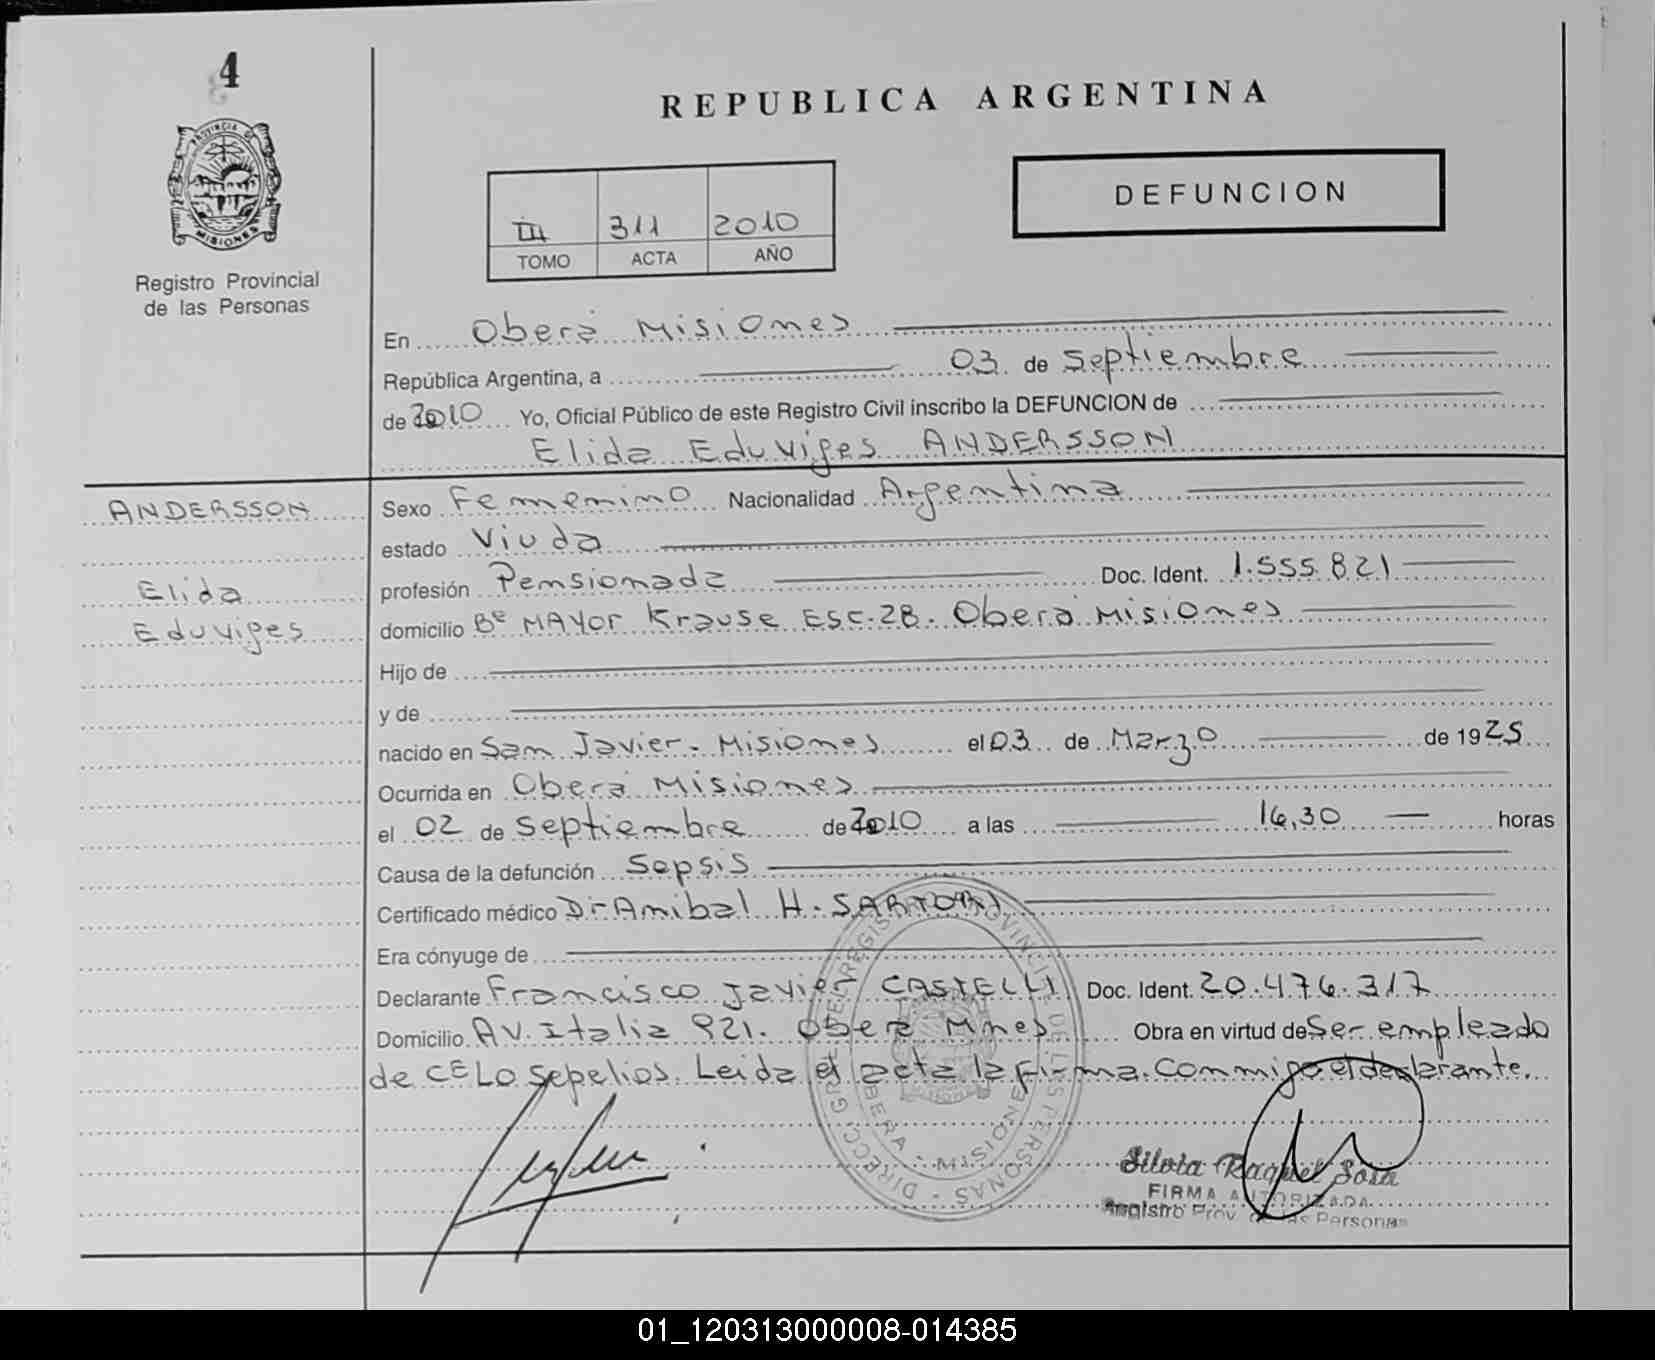 4
REPUBLICA ARGENTINA
PROVINCIA DE MISIONES
Registro Provincial
de las Personas
III 311 2010
TOMO ACTA AÑO
DEFUNCION
En Oberá Misiones
República Argentina, a 03 de Septiembre
de 2010 Yo, Oficial Público de este Registro Civil inscribo la DEFUNCION de
Elida Eduviges ANDERSSON
ANDERSSON
Elida
Eduviges
Sexo Femenino Nacionalidad Argentina
estado Viuda
profesión Pensionada Doc. Ident. 1.555.821
domicilio Bº MAYOR Krause ESC.28. Oberá Misiones
Hijo de
y de
nacido en San Javier - Misiones el 03 de Marzo de 1925
Ocurrida en Oberá Misiones
el 02 de Septiembre de 2010 a las 16,30 horas
Causa de la defunción Sepsis
Certificado médico Dr Anibal H. SARTORI
Era cónyuge de
Declarante Francisco Javier CASTELLI Doc. Ident. 20.476.317
Domicilio AV. Italia 921. Oberá Mnes Obra en virtud de Ser empleado
de CELO Sepelios. Leida el acta la firma conmigo el declarante.
OBERA - MISIONES
Silvia Raquel Sosa
FIRMA AUTORIZADA
Registro Prov. de las Personas
01_120313000008-014385